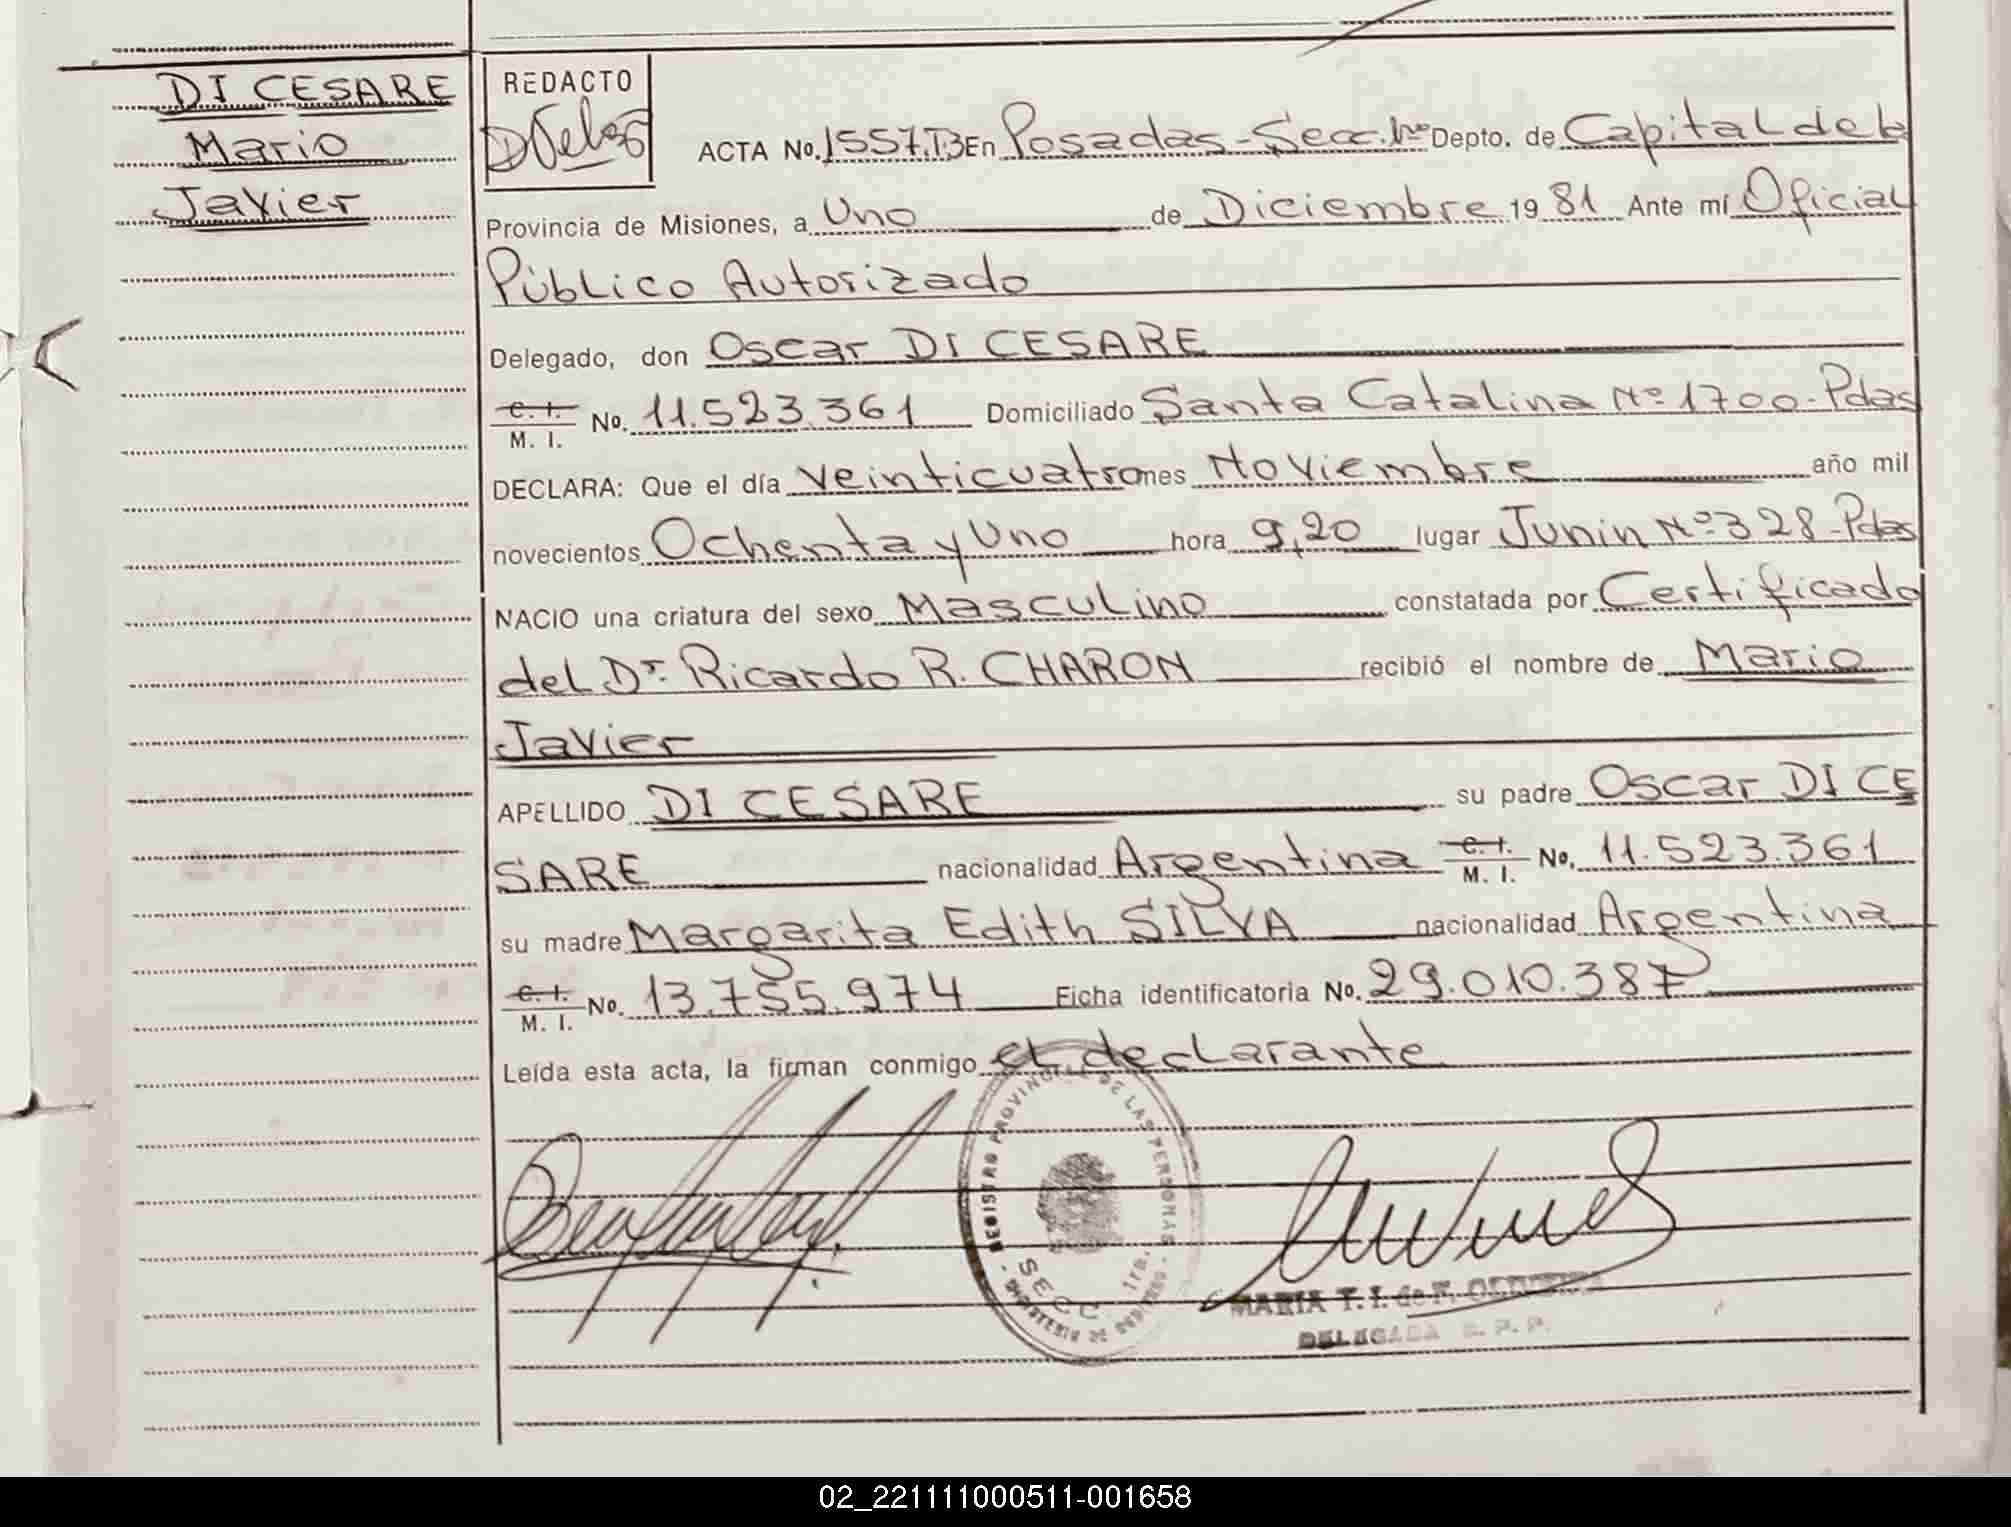 DI CESARE
Mario
Javier
REDACTO
ACTA No. 1557.T.3 En Posadas-Secc.1ra Depto. de Capital de la
Provincia de Misiones, a Uno de Diciembre 19 81 Ante mí Oficial
Público Autorizado
Delegado, don Oscar DI CESARE
C. I.
M. I. No. 11.523.361 Domiciliado Santa Catalina Nº 1700-Pdas
DECLARA: Que el día veinticuatro mes Noviembre año mil
novecientos Ochenta y Uno hora 9,20 lugar Junin Nº 328-Pdas
NACIO una criatura del sexo Masculino constatada por Certificado
del Dr. Ricardo R. CHARON recibió el nombre de Mario
Javier
APELLIDO DI CESARE su padre Oscar DI CE
SARE nacionalidad Argentina C. I. M. I. No. 11.523.361
su madre Margarita Edith SILVA nacionalidad Argentina
C. I.
M. I. No. 13.755.974 Ficha identificatoria No. 29.010.387
Leída esta acta, la firman conmigo el declarante
REGISTRO PROVINCIAL DE LAS PERSONAS
SECC. 1ra.
MINISTERIO DE GOBIERNO
MARIA T. I. de F.
DELEGADA R. P. P.
02_221111000511-001658